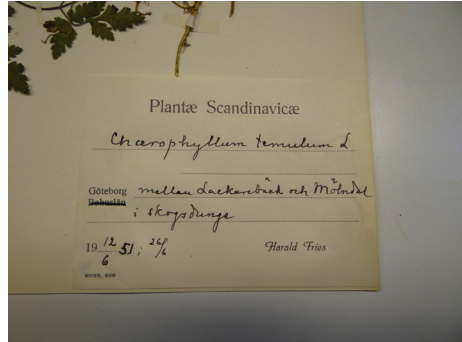 Plantæ Scandinavicæ
Chærophyllum temulum L
Göteborg mellan Lackarebäck och Mölndal
Bohuslän
i skogsdunge
19 12/6 51; 26/6 Harald Fries